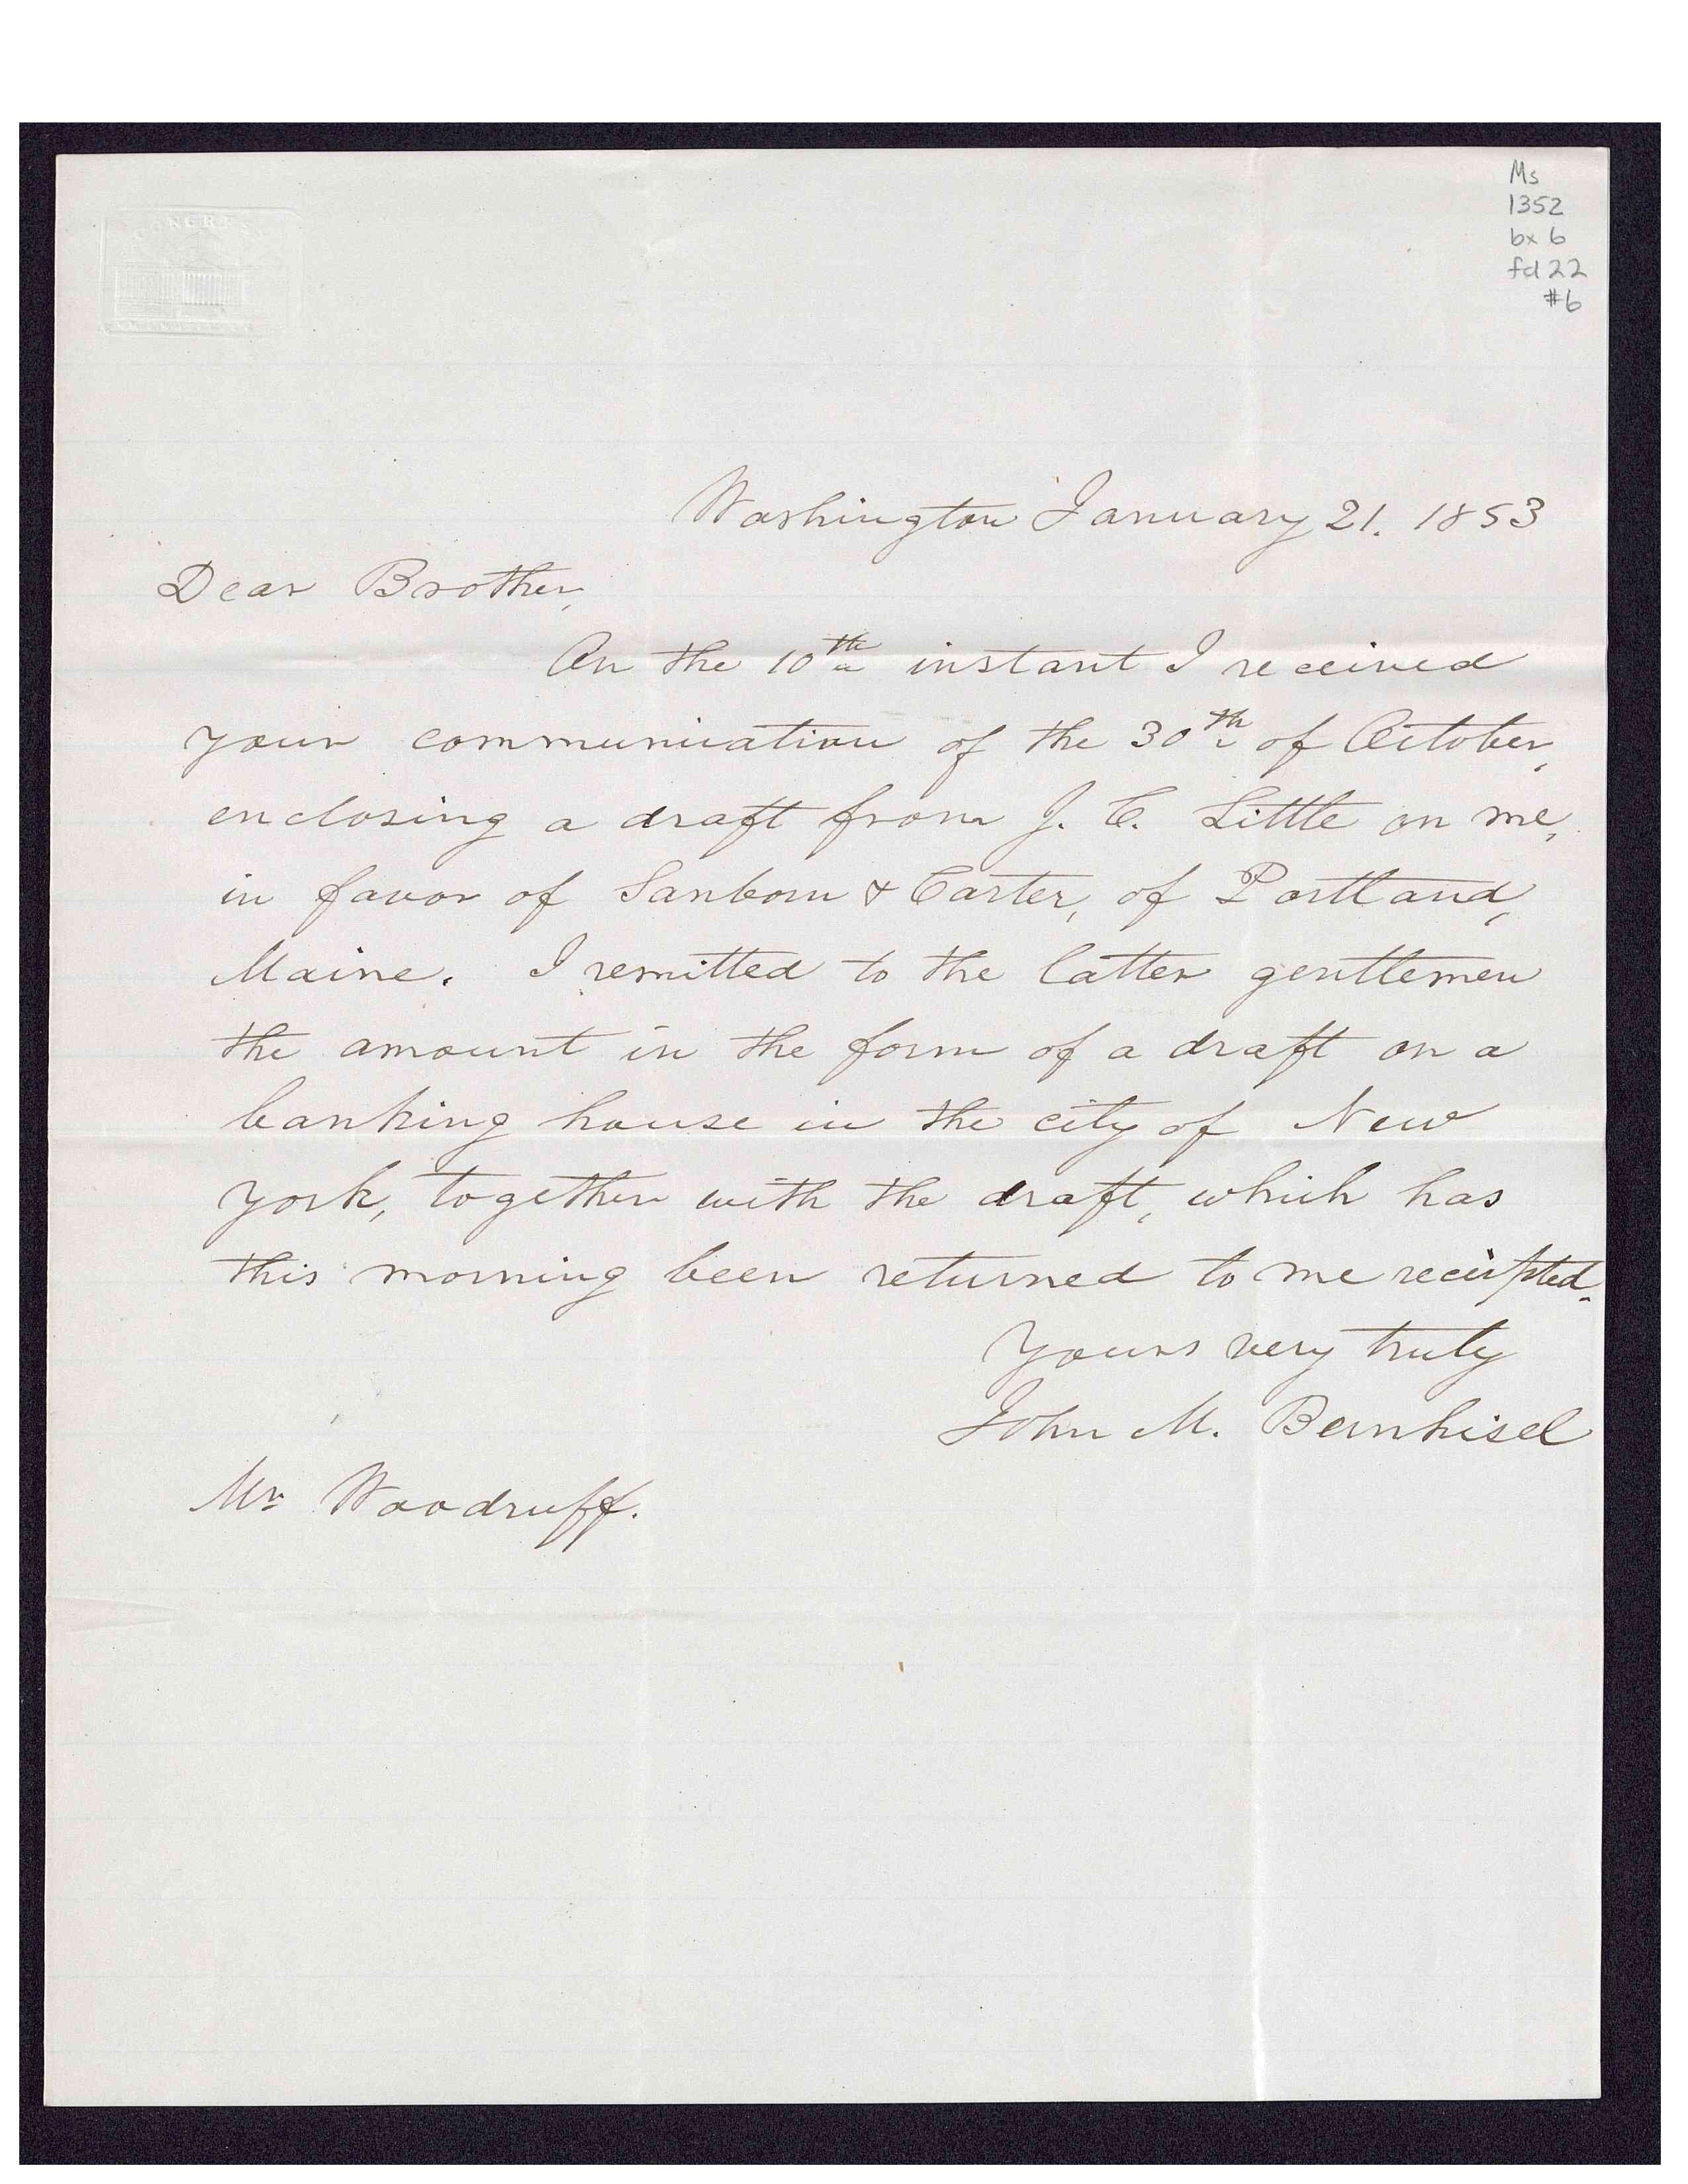 Ms
1352
bx 6
fd 22
#6
CONGRESS
Washington January 21. 1853
Dear Brother,
On the 10th instant I received
your communication of the 30th of October,
enclosing a draft from J. C. Little on me,
in favor of Sanborn & Carter, of Portland,
Maine. I remitted to the latter gentlemen
the amount in the form of a draft on a
banking house in the city of New
York, together with the draft, which has
this morning been returned to me receipted.
Yours very truly
John M. Bernhisel
Mr Woodruff.